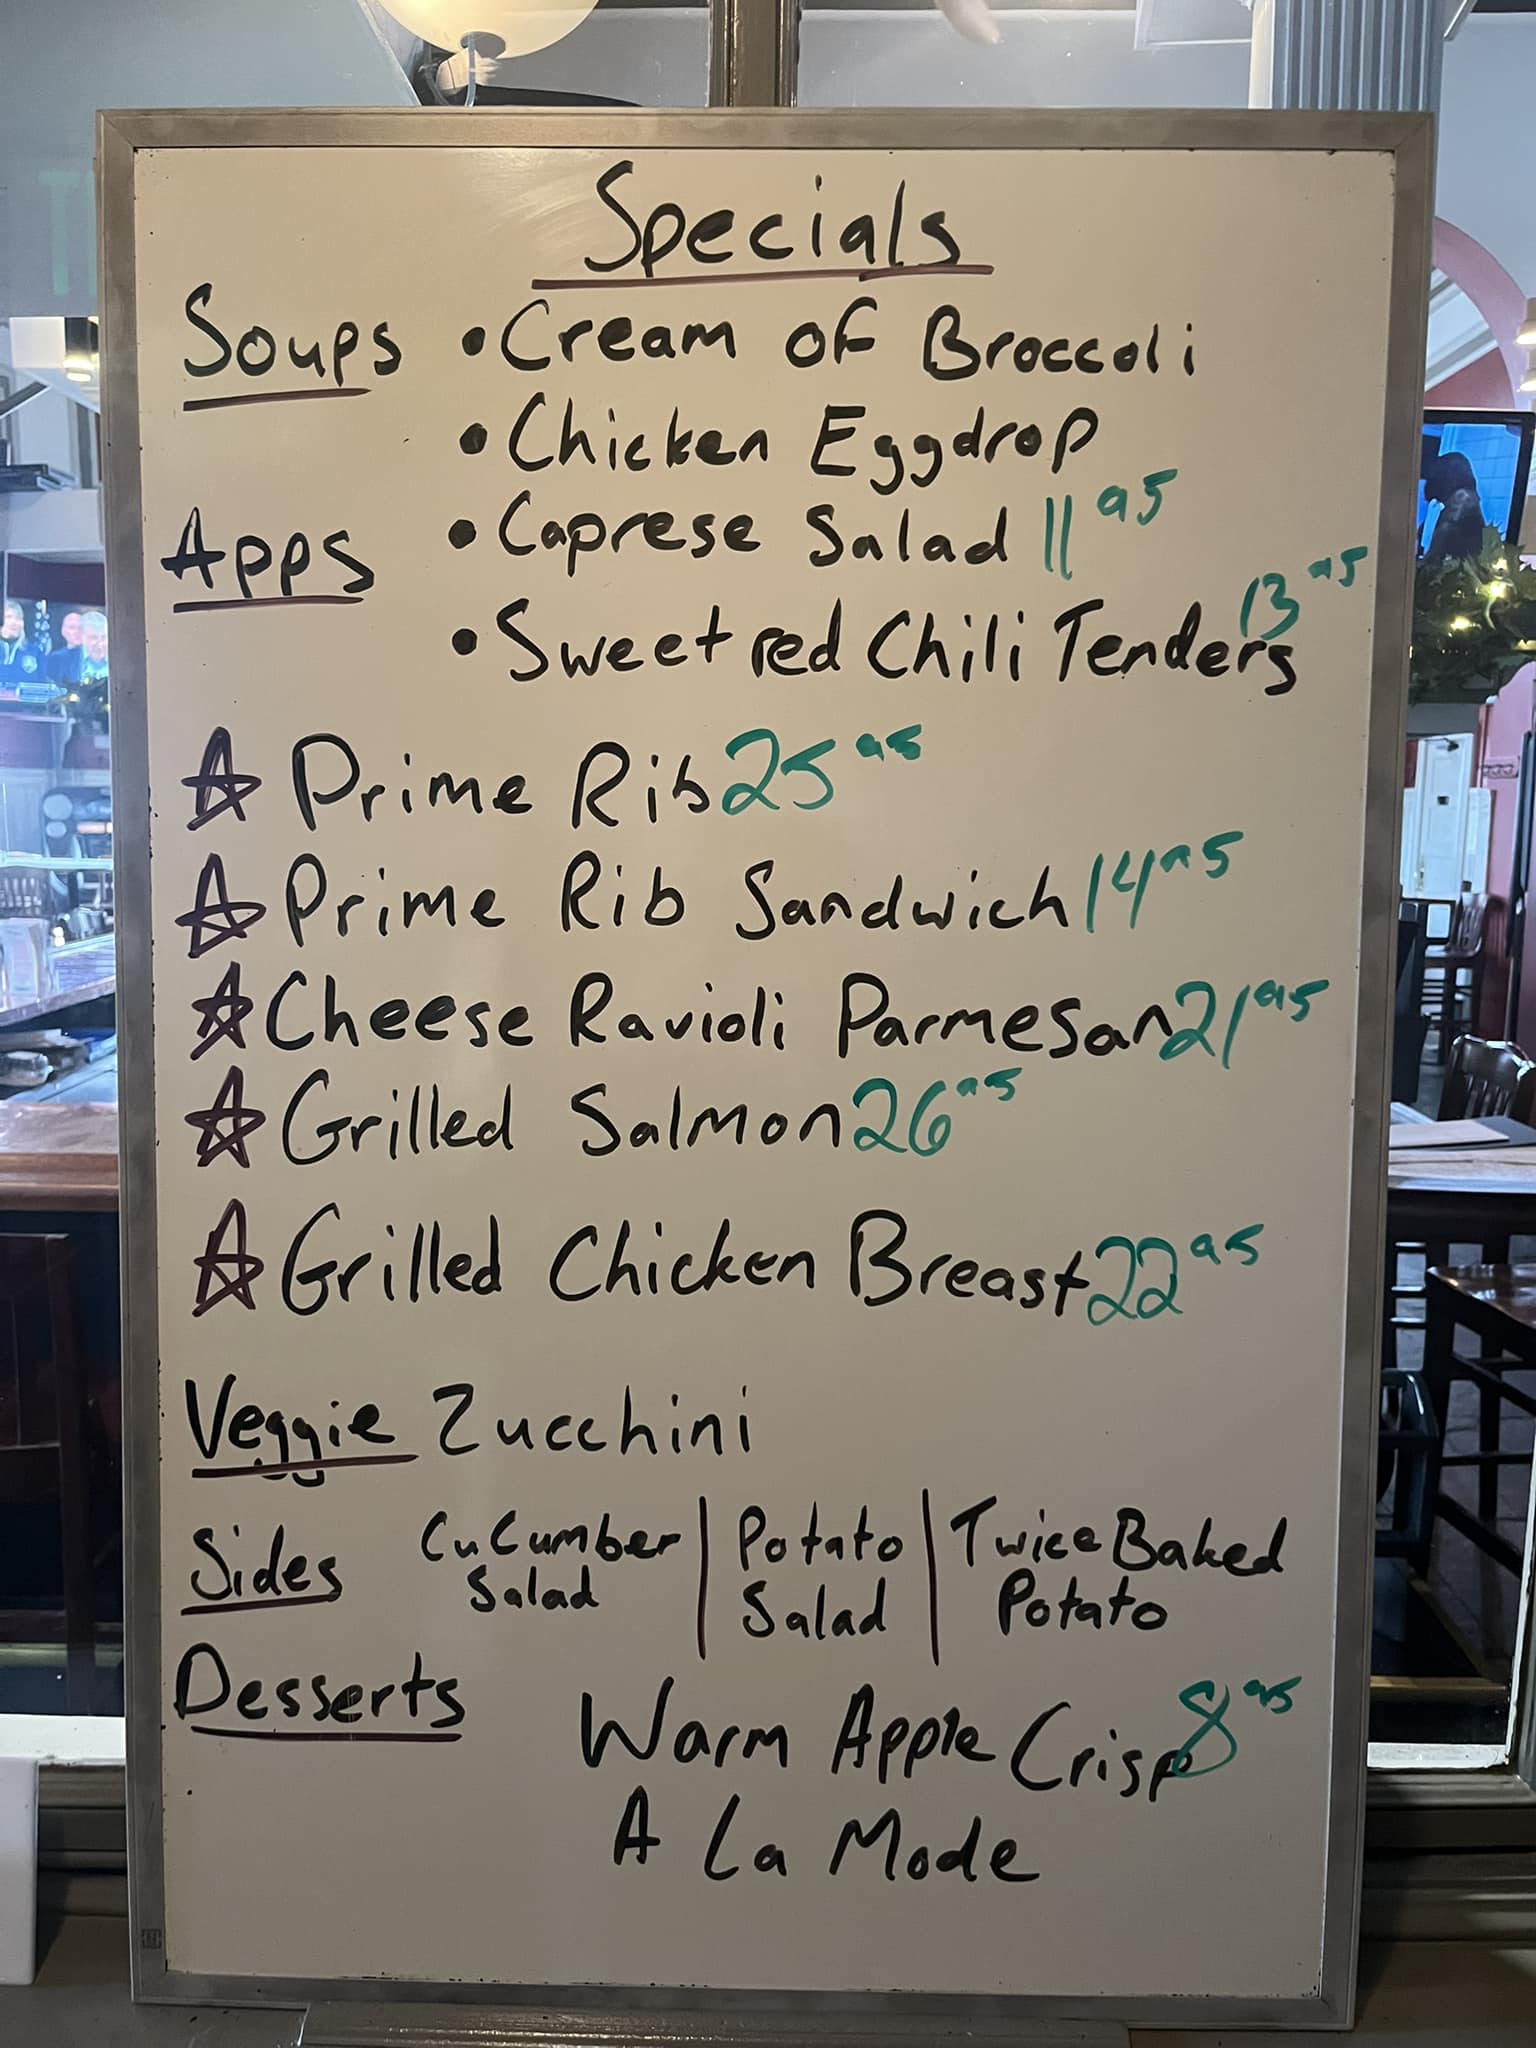 Specials
Soups • Cream of Broccoli
• Chicken Eggdrop
Apps • Caprese Salad 11 95
• Sweet red Chili Tenders 13 95
☆ Prime Rib 25 95
☆ Prime Rib Sandwich 14 95
☆ Cheese Ravioli Parmesan 21 95
☆ Grilled Salmon 26 95
☆ Grilled Chicken Breast 22 95
Veggie Zucchini
Sides CuCumber Salad | Potato Salad | Twice Baked Potato
Desserts Warm Apple Crisp 8 95
A La Mode